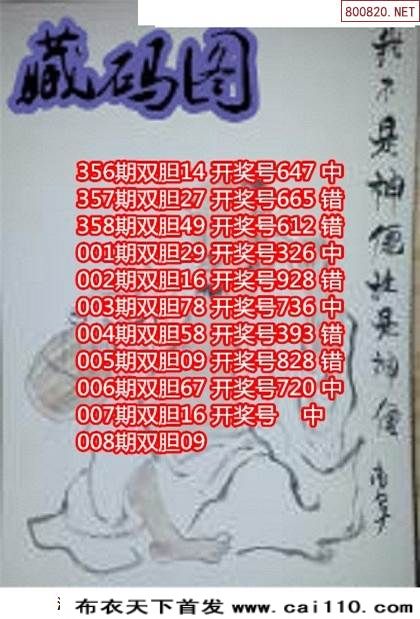 800820.NET
藏码图
我不是神仙
356期双胆14 开奖号647 中
357期双胆27 开奖号665 错
358期双胆49 开奖号612 错
001期双胆29 开奖号326 中
002期双胆16 开奖号928 错
003期双胆78 开奖号736 中
004期双胆58 开奖号393 错
005期双胆09 开奖号828 错
006期双胆67 开奖号720 中
007期双胆16 开奖号 中
008期双胆09
布衣天下首发 www.cai110.com